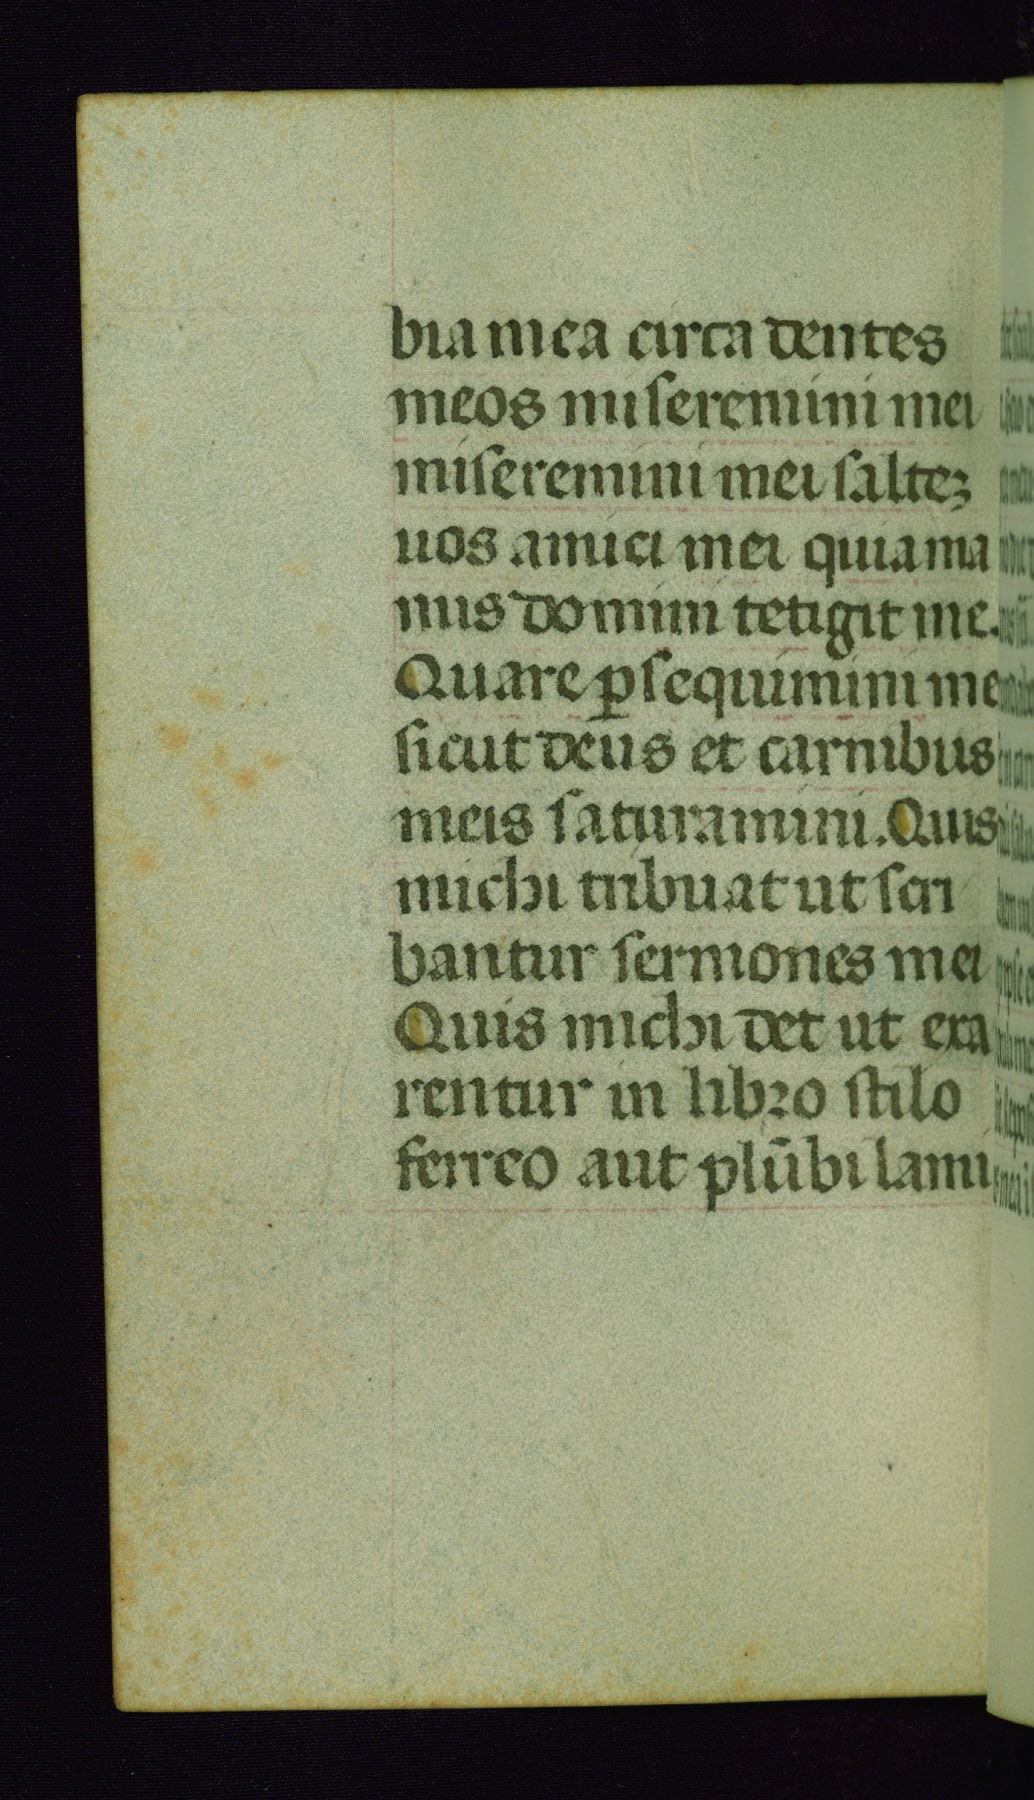 bia mea circa dentes
meos miseremini mei
miseremini mei saltez
uos amici mei quia ma
nus domini tetigit me.
Quare ꝑsequimini me
sicut deus et carnibus
meis saturamini. Quis
michi tribuat ut scri
bantur sermones mei
Quis michi det ut exa
rentur in libro stilo
ferreo aut plūbi lami